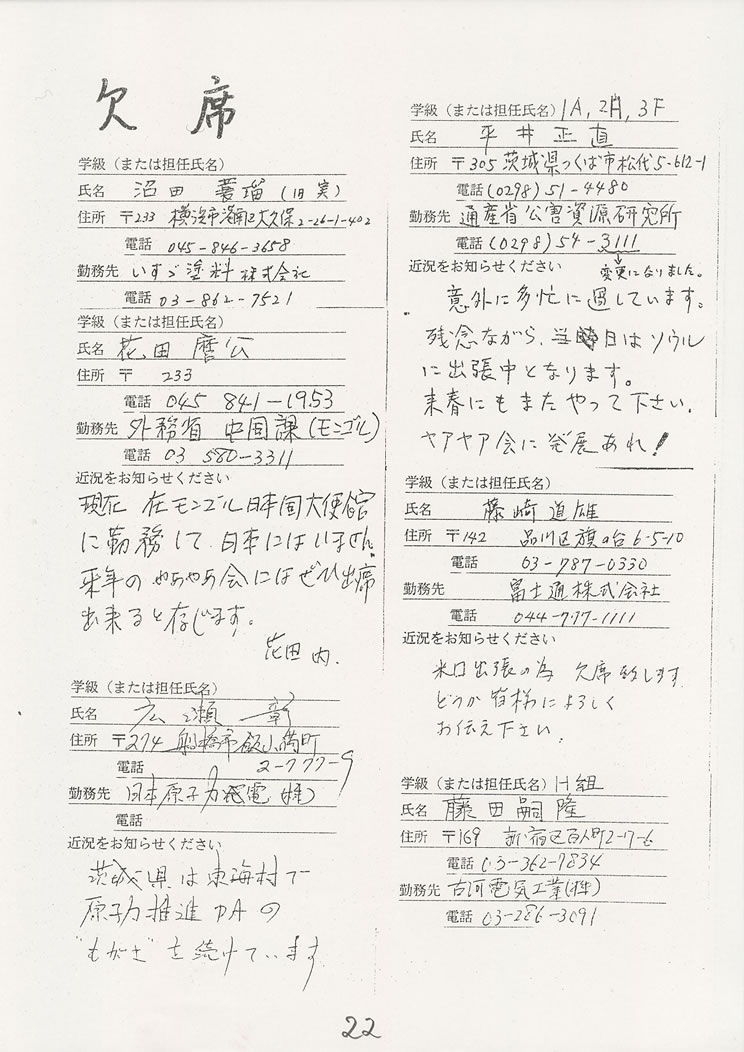 欠席
学級（または担任氏名）
氏名 沼田 (旧 実)
住所 〒233 横浜市港南区大久保2-26-1-402
電話 045-846-3658
勤務先 いすゞ塗料株式会社
電話 03-862-7521
学級（または担任氏名）
氏名 花田麿公
住所 〒 233
電話 045 841-1953
勤務先 外務省 中国課(モンゴル)
電話 03 580-3311
近況をお知らせください
現在 在モンゴル日本国大使館
に勤務して、日本にはいません。
来年のやあやあ会にはぜひ出席
出来ると存じます。
花田 内.
学級（または担任氏名）
氏名 広瀬 彰
住所 〒274 船橋市飯山満町
電話 2-777-9
勤務先 日本原子力発電(株)
電話
近況をお知らせください
茨城県は東海村で
原子力推進PAの
"もがき"を続けています
学級（または担任氏名）1A, 2H, 3F
氏名 平井正直
住所 〒305 茨城県つくば市松代5-612-1
電話 (0298) 51-4480
勤務先 通産省公害資源研究所
電話 (0298) 54-3111
近況をお知らせください 変更になりました。
意外に多忙に過しています。
残念ながら、当日はソウル
に出張中となります。
来春にもまたやって下さい.
ヤアヤア会に発展あれ!
学級（または担任氏名）
氏名 藤崎道雄
住所 〒142 品川区旗の台6-5-10
電話 03-787-0330
勤務先 富士通株式会社
電話 044-777-1111
近況をお知らせください
米国出張の為 欠席致します
どうか皆様によろしく
お伝え下さい.
学級（または担任氏名）H組
氏名 藤田嗣隆
住所 〒169 新宿区百人町2-17-6
電話 03-362-7834
勤務先 古河電気工業(株)
電話 03-286-3091
22